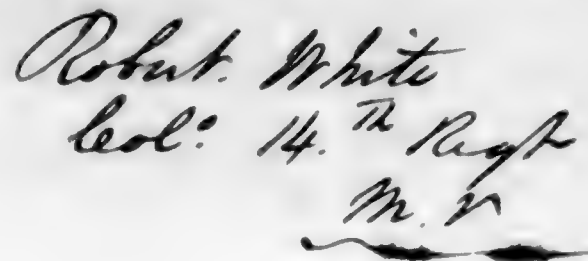 Robert. White
Col: 14.th Regt
M. V